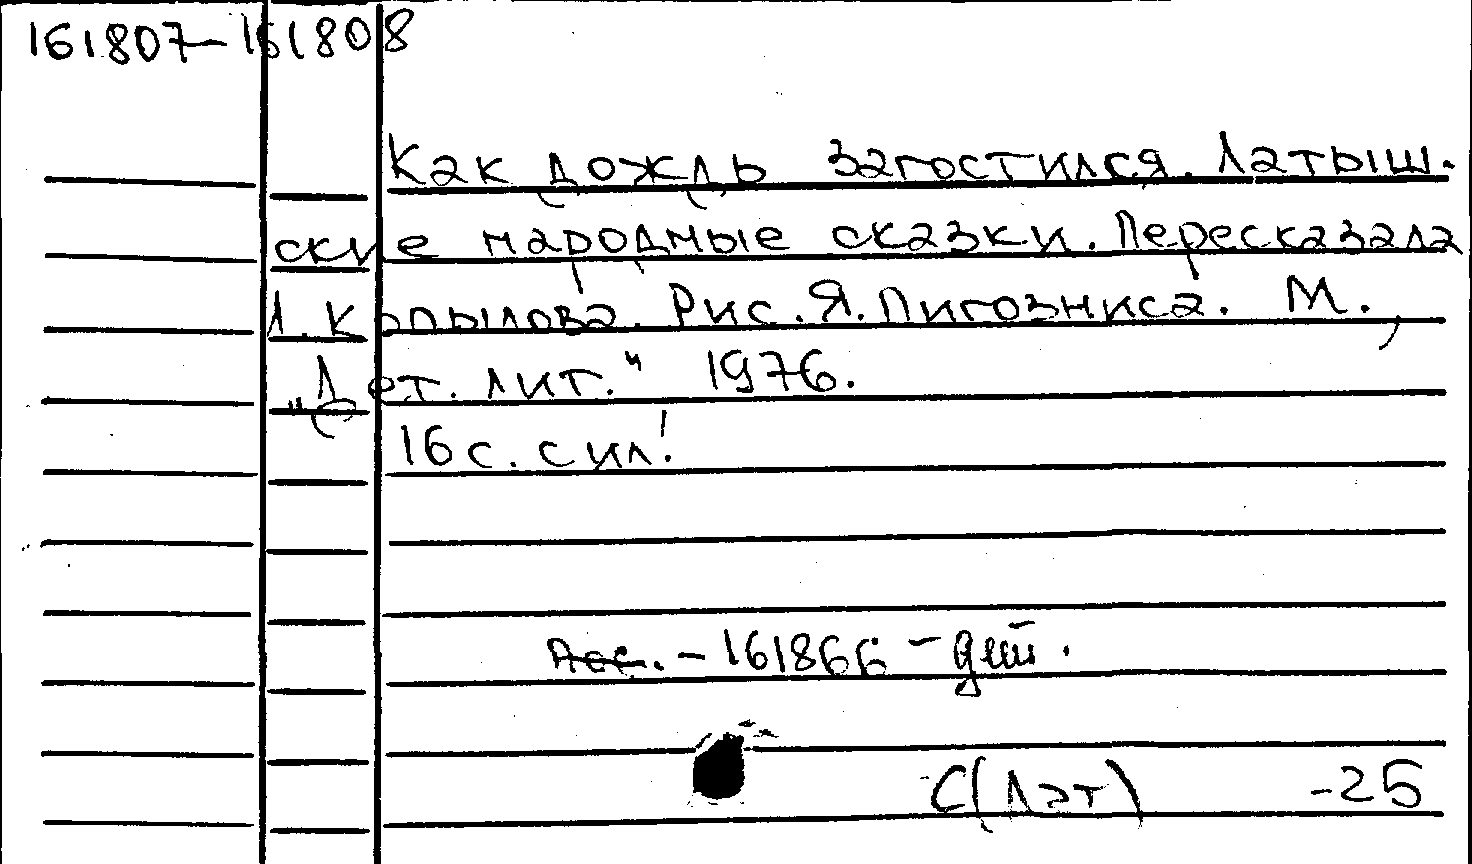 161807-161808
Как дождь загостился. Латыш.
ские народные сказки. Пересказала
Л. Копылова. Рис. Я. Пигозниса. М.,
„Дет. лит." 1976.
16 с. с ил!
- 161866 - дет.
С(Лат) -25